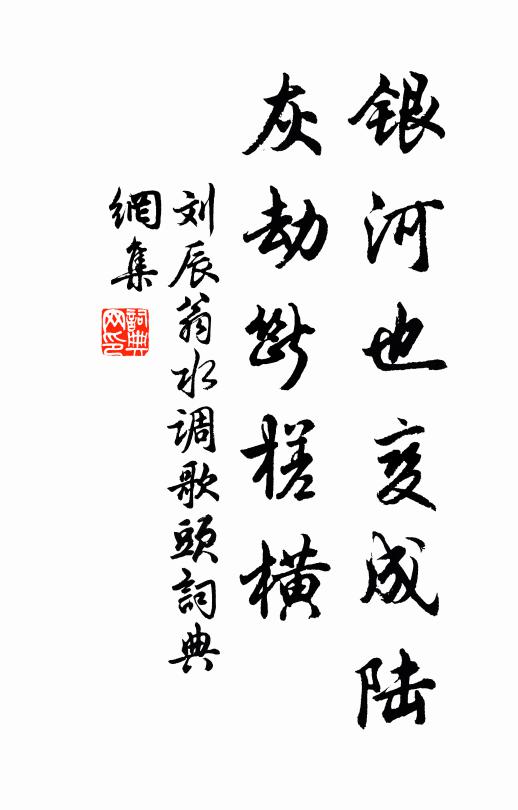 银河也变成陆
灰劫断槎横
刘辰翁水调歌頭詞典
網集
詞典网印